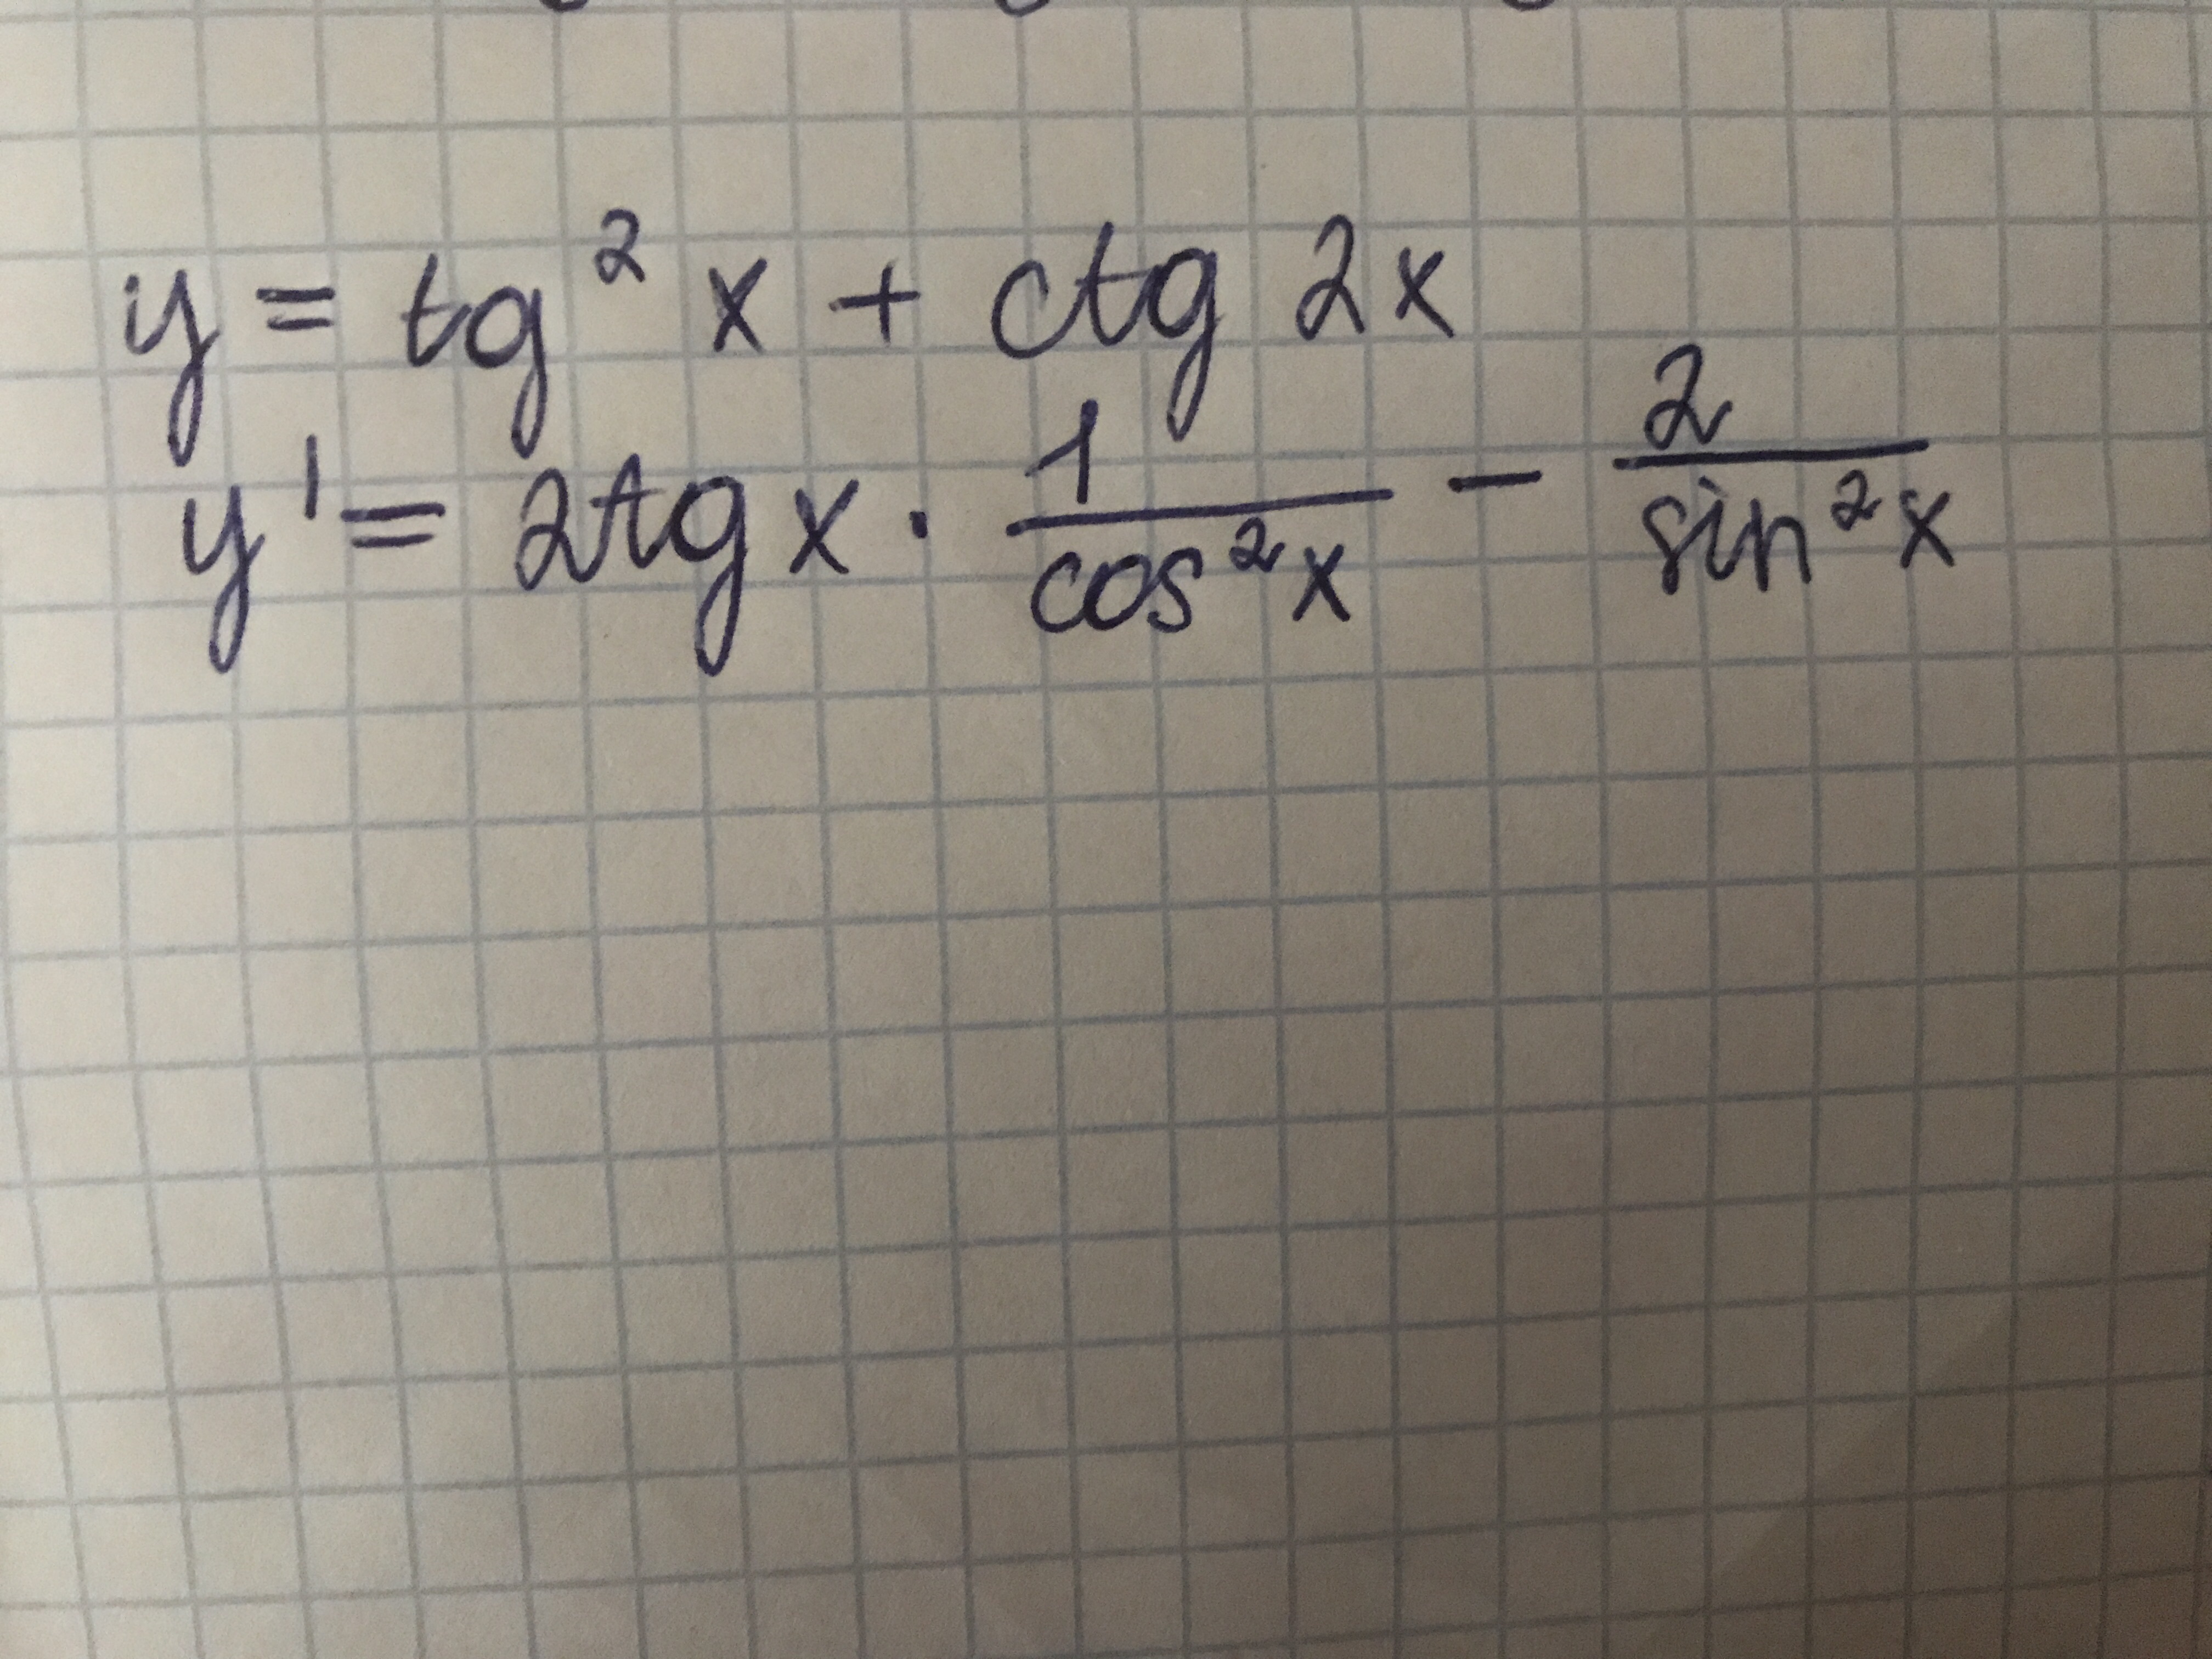 y = tg² x + ctg 2x
y' = 2tg x · 1/cos²x − 2/sin²x